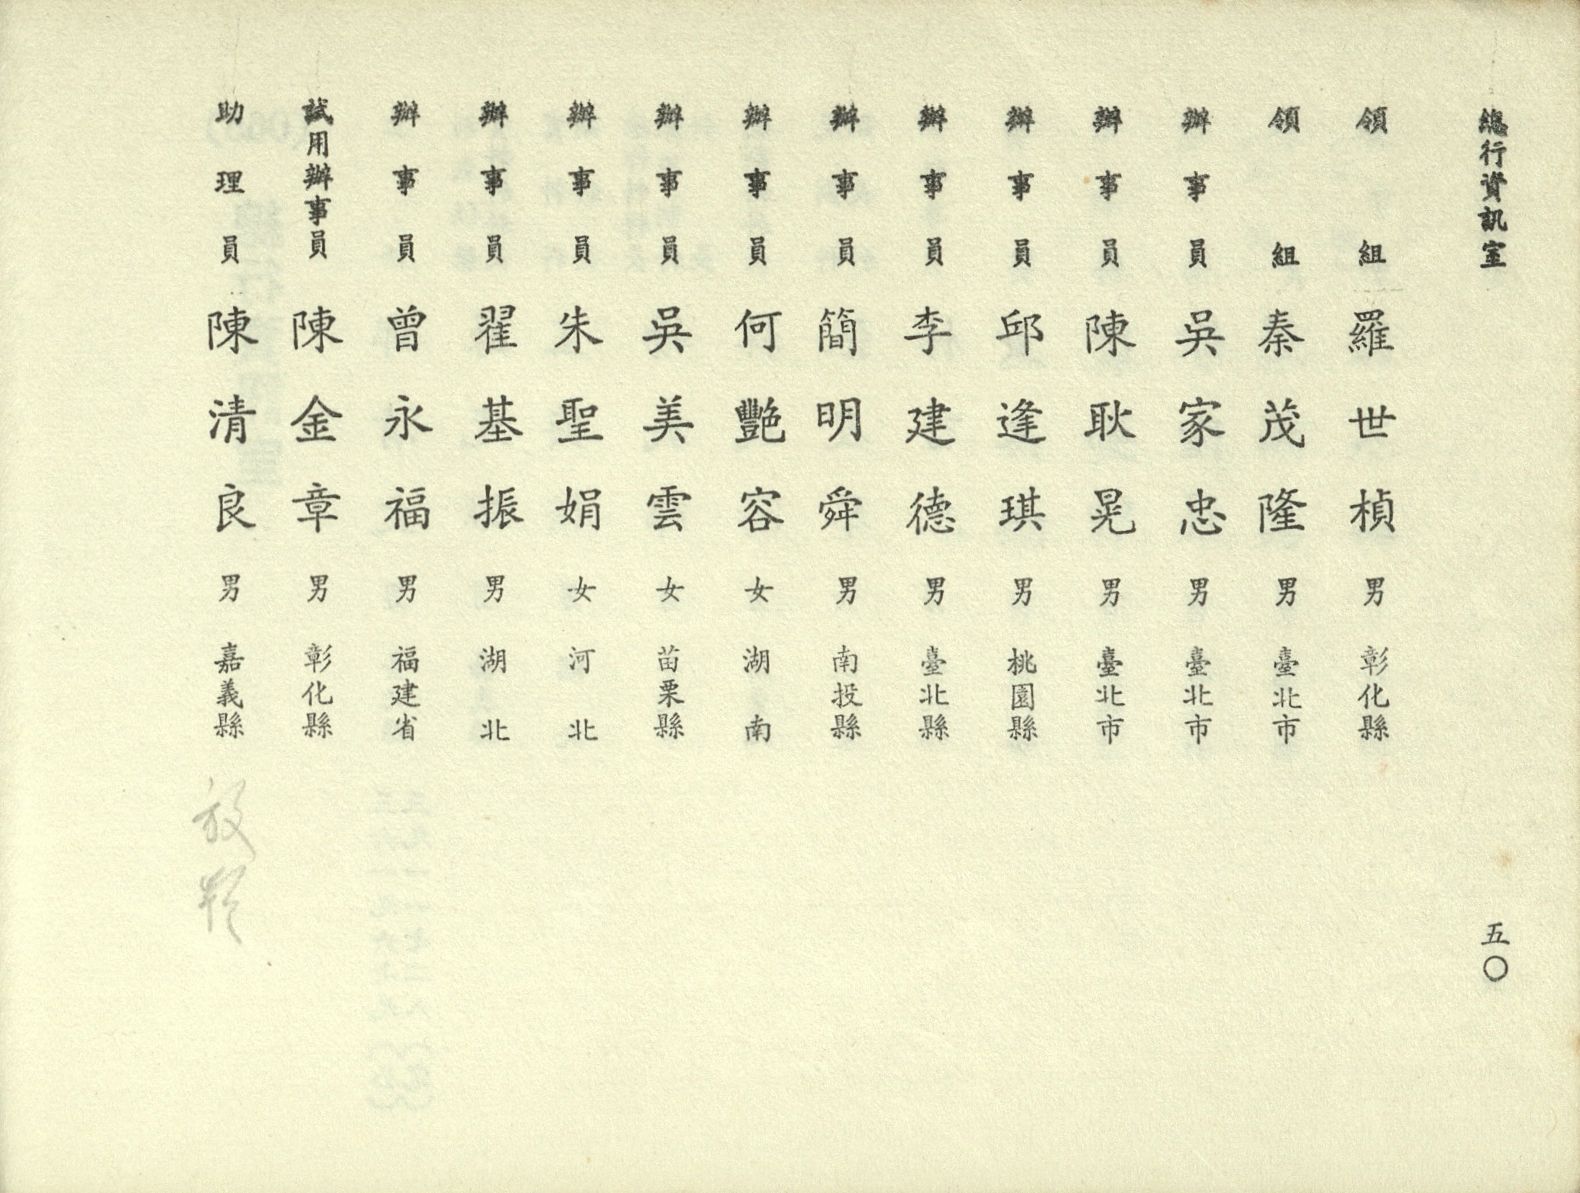 總行資訊室
五〇
領組 羅世楨 男 彰化縣
領組 秦茂隆 男 臺北市
辦事員 吳家忠 男 臺北市
辦事員 陳耿晃 男 臺北市
辦事員 邱逢琪 男 桃園縣
辦事員 李建德 男 臺北縣
辦事員 簡明舜 男 南投縣
辦事員 何艷容 女 湖南
辦事員 吳美雲 女 苗栗縣
辦事員 朱聖娟 女 河北
辦事員 翟基振 男 湖北
辦事員 曾永福 男 福建省
試用辦事員 陳金章 男 彰化縣
助理員 陳清良 男 嘉義縣